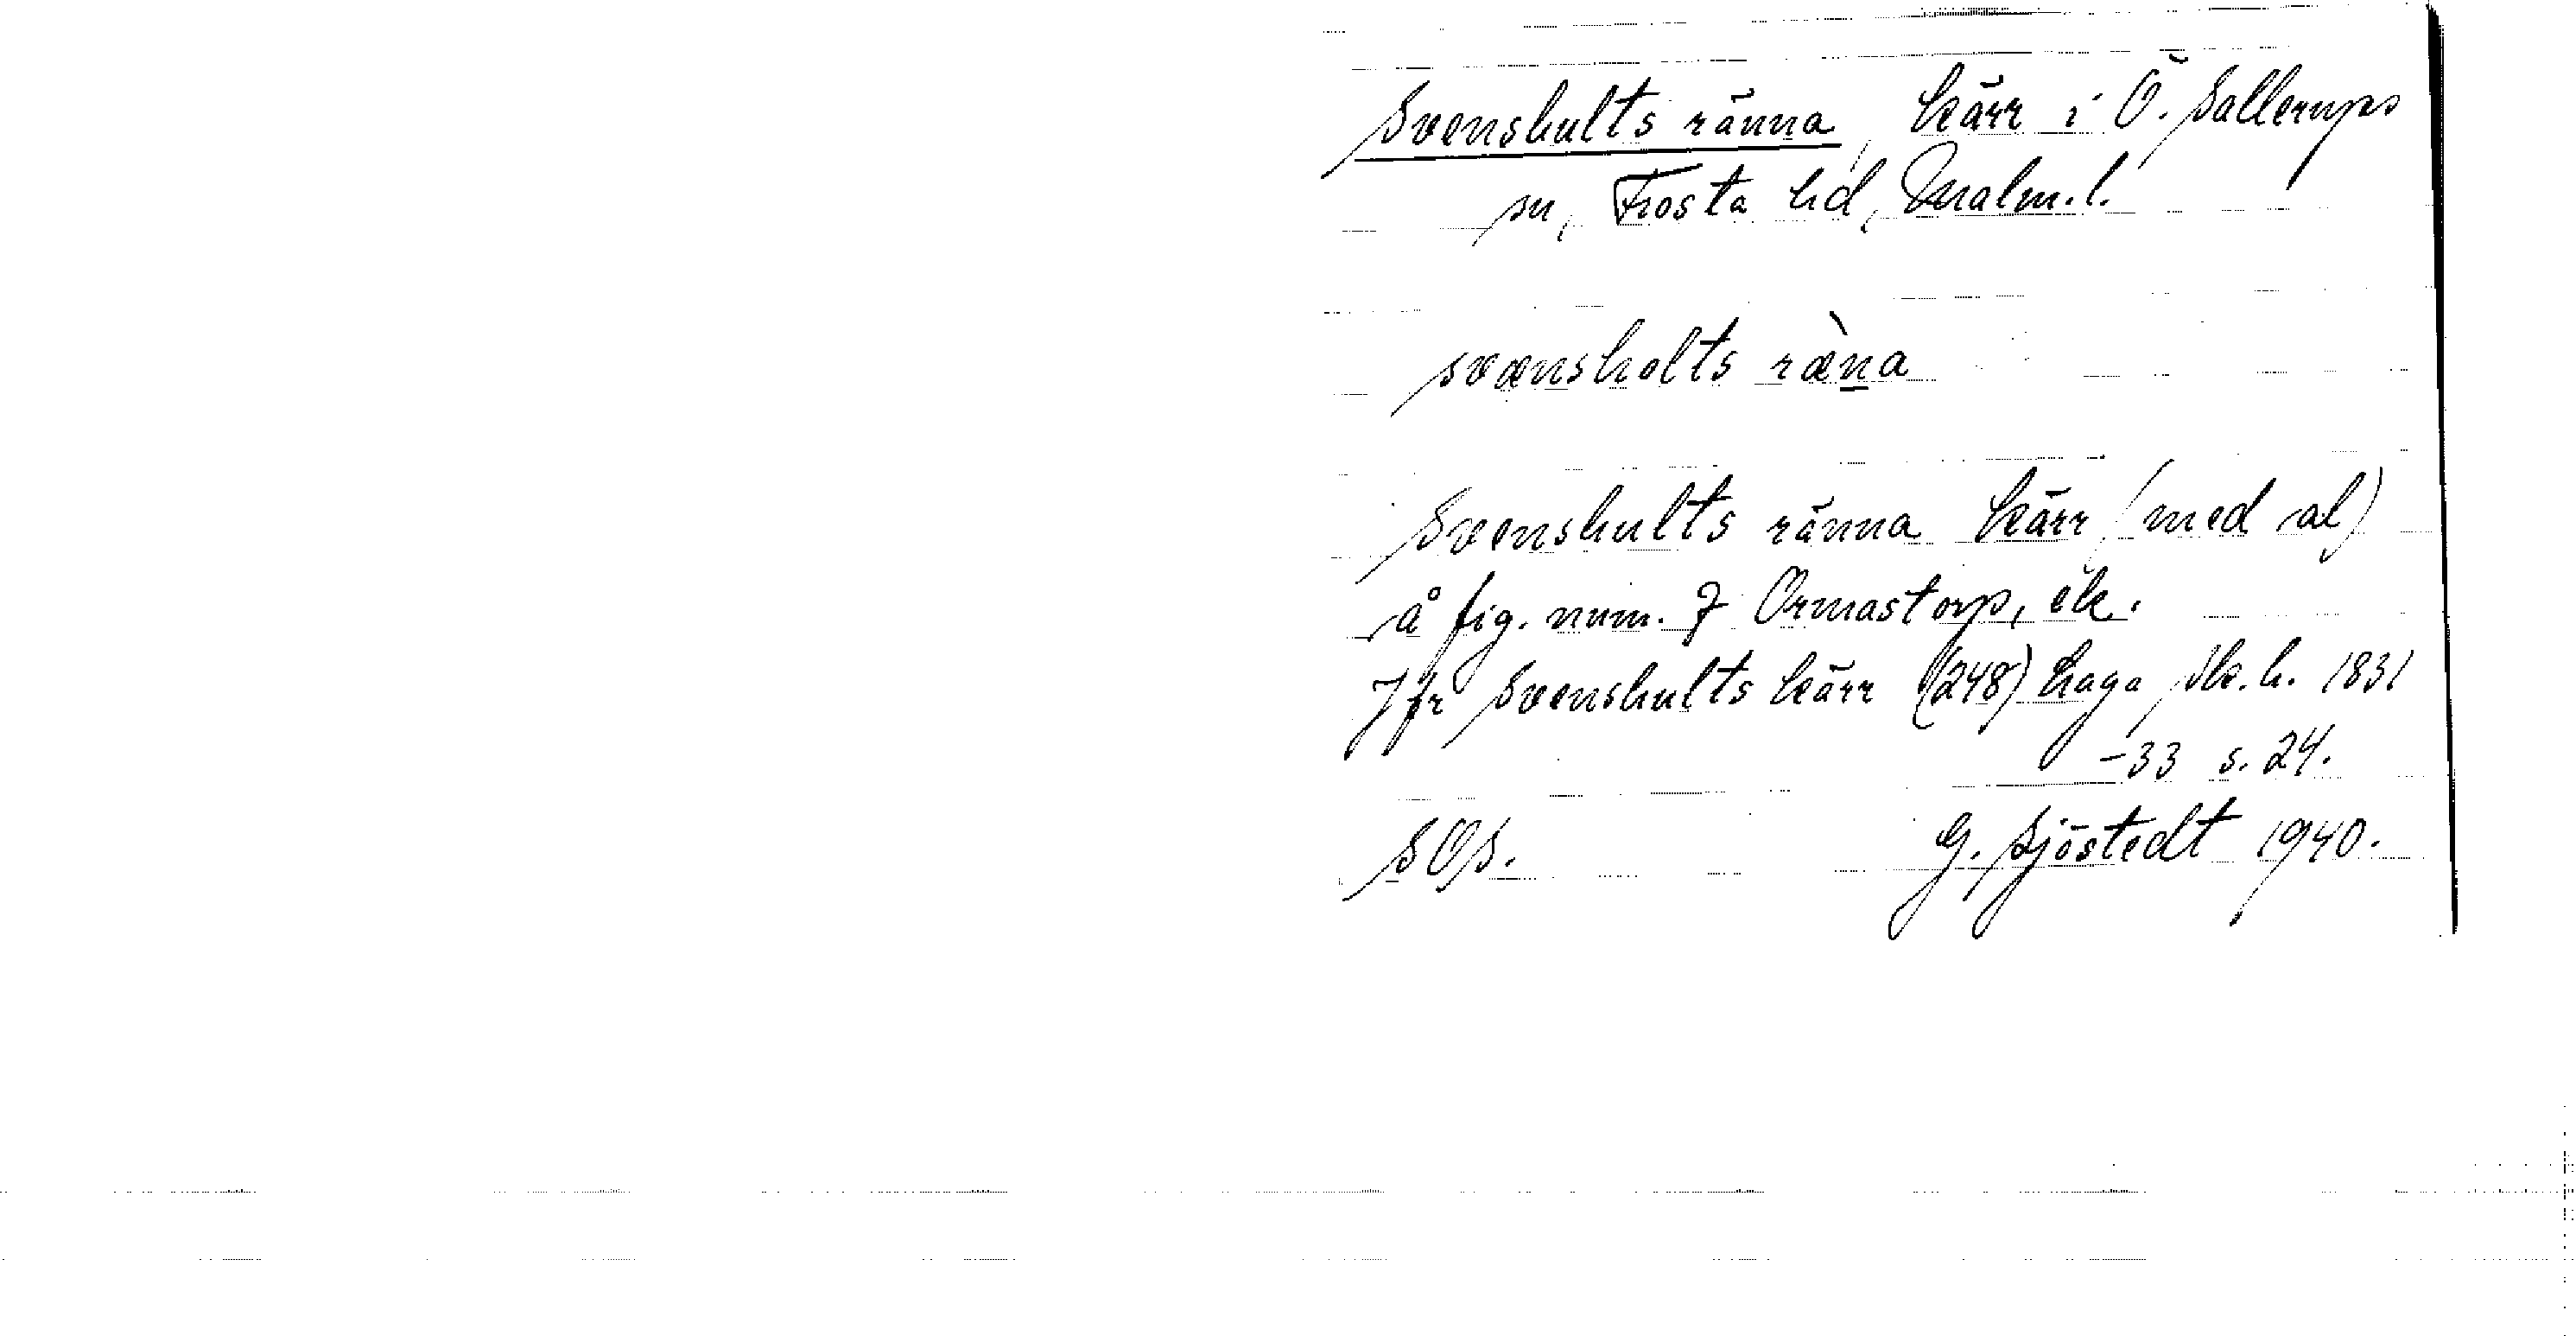 Svenshults ränna, kärr i Ö. Sallerups
sn, Frosta hd, Malm.l.
svænsholts ræ̀na
Svenshults ränna kärr (med al)
å fig. num. 7 Ormastorp, ek.
Jfr Svenshults kärr (248) Laga sk. h. 1831
-33 s. 24.
SOS. G. Sjöstedt 1940.